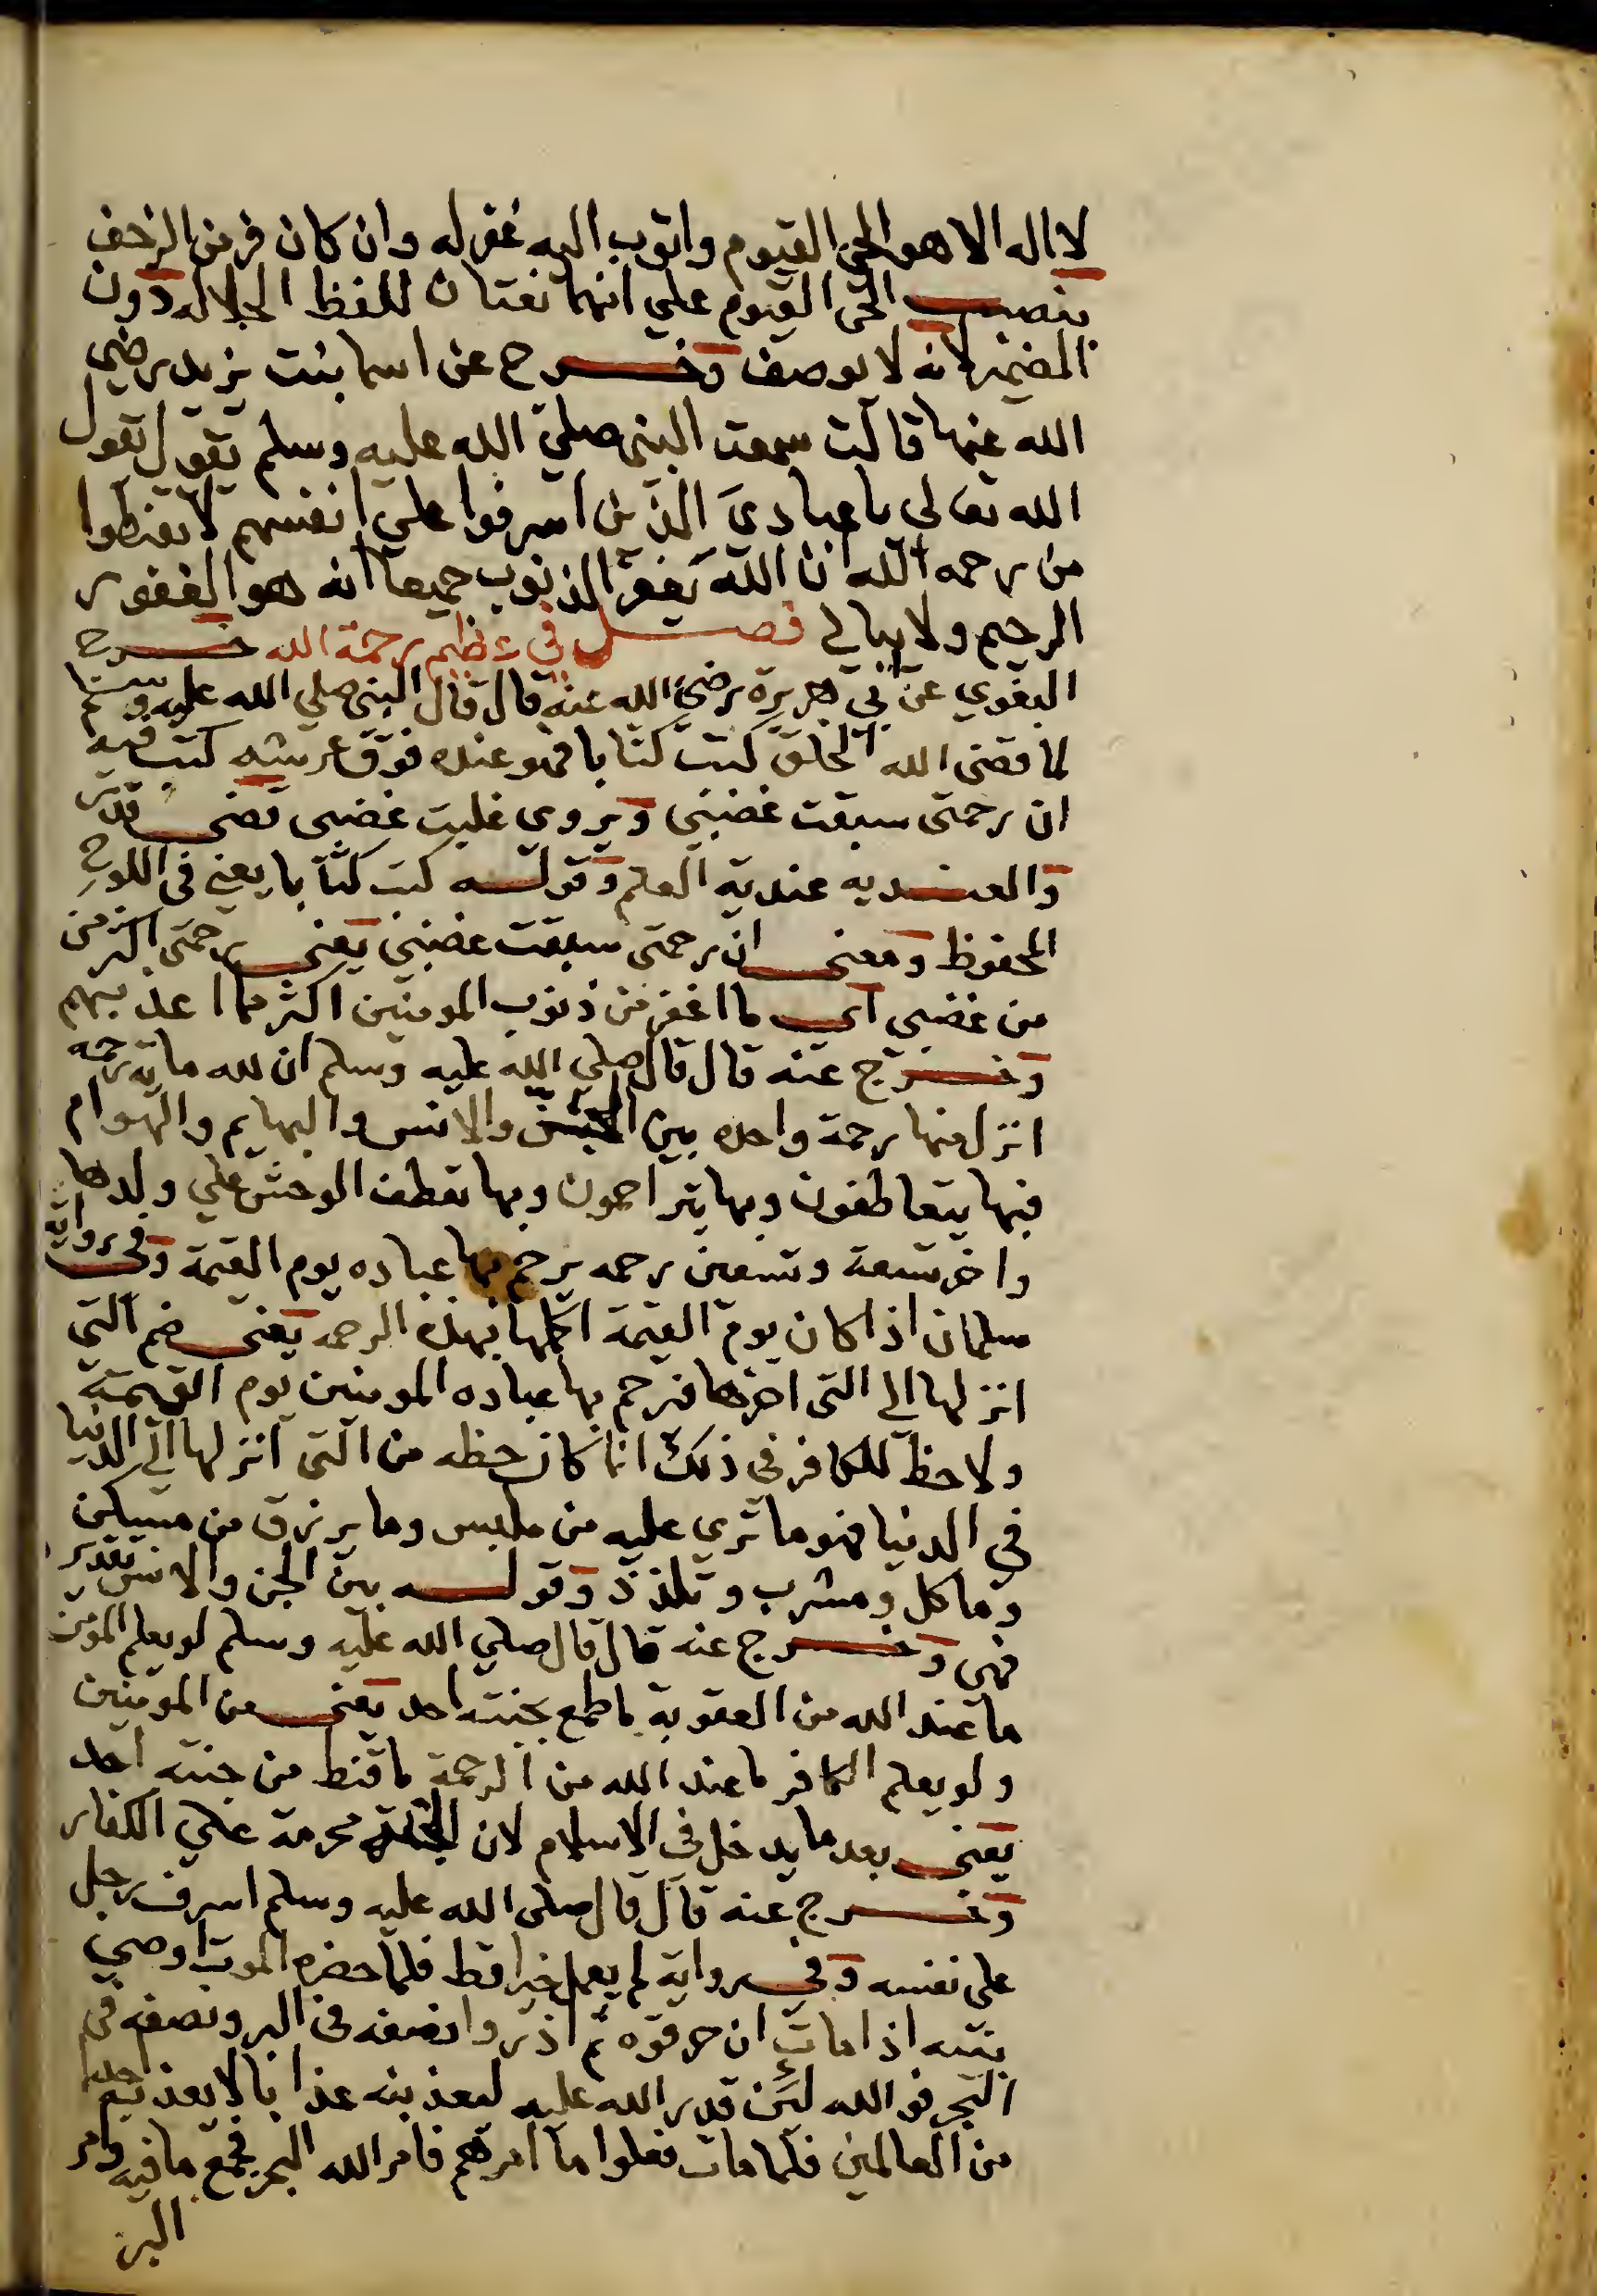 لا اله الا هو الحي القيوم واتوب اليه غفر له وان كان فر من الزحف
بنصب الحي القيوم علي انهما نعتان للفظ الجلاله دون
المضمر لانه لا يوصف وخرج عن اسما بنت يزيد رضي
الله عنها قالت سمعت النبي صلي الله عليه وسلم يقول يقول
الله تعالى ياعبادي الذين اسرفوا علي انفسهم لا تقنطوا
من رحمه الله ان الله يغفر الذنوب جميعا انه هو الغفور
الرحيم ولا يبالي فصل في عظيم رحمة الله خرج
البغوي عن ابي هريرة رضي الله عنه قال قال النبي صلي الله عليه وسلم
لما قضى الله الخلق كتب كتابا فهو عنده فوق عرشه كتب فيه
ان رحمتي سبقت غضبي ويروي غلبت غضبي قضى قدر
والعنديه عندية العلم وقوله كتب كتابا يعني في اللوح
المحفوظ ومعنى ان رحمتي سبقت غضبي يعني رحمتي اكثر من
من غضبي اي ما اغفر من ذنوب المومنين اكثر مما اعذبهم
وخرج عنه قال قال صلي الله عليه وسلم ان لله ماية رحمه
انزل منها رحمة واحده بين الجن والانس والبهايم والهوام
فبها يتعاطفون وبها يتراحمون وبها تعطف الوحش علي ولدها
واخر تسعة وتسعين رحمه يرحم بها عباده يوم القيمة وفي رواية
سلمان اذا كان يوم القيمة اكملها بهذه الرحمه يعني ضم التي
انزلها الي التي اخرها فيرحم بها عباده المومنين يوم القيمة
ولا حظ للكافر في ذلك انما كان حظه من التي انزلها الي الدنيا
في الدنيا فهو ما تري عليه من ملبس وما يرزق من مسكن
وماكل ومشرب وتلذذ وقوله بين الجن والانس تقدير
فهى وخرج عنه قال قال صلي الله عليه وسلم لو يعلم المومن
ما عند الله من العقوبة ما طمع بجنته احد يعني من المومنين
ولو يعلم الكافر ما عند الله من الرحمة ما قنط من جنته احد
يعني بعد ما يدخل في الاسلام لان الجنة محرمة علي الكفار
وخرج عنه قال قال صلى الله عليه وسلم اسرف رجل
على نفسه وفي رواية لم يعمل خيرا قط فلما حضره الموت اوصي
بنيه اذا مات ان حرقوه ثم اذروا نصفه في البر ونصفه في
البحر فو الله لئن قدر الله عليه ليعذبنه عذابا لا يعذبه احدا
من العالمين فلما مات فعلوا ما امرهم فامر الله البحر فجمع ما فيه وامر
البر